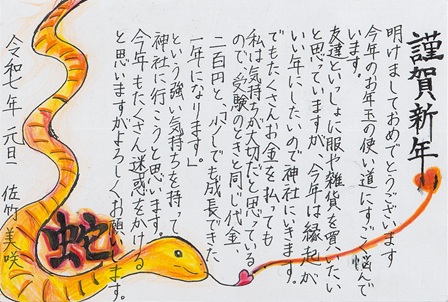 謹賀新年
明けましておめでとうございます
今年のお年玉の使い道にすごく悩んで
います。
友達といっしょに服や雑貨を買いたい
と思っていますが、今年は縁起が
いい年にしたいので神社にいきます。
でもたくさんお金を払っても
私は気持ちが大切だと思っている
ので、受験のときと同じ代金
二百円と、「少しでも成長できた
一年になります。」
という強い気持ちを持って
神社に行こうと思います。
今年もたくさん迷惑をかける
と思いますがよろしくお願いします。
令和七年 元旦 佐竹 美咲
蛇